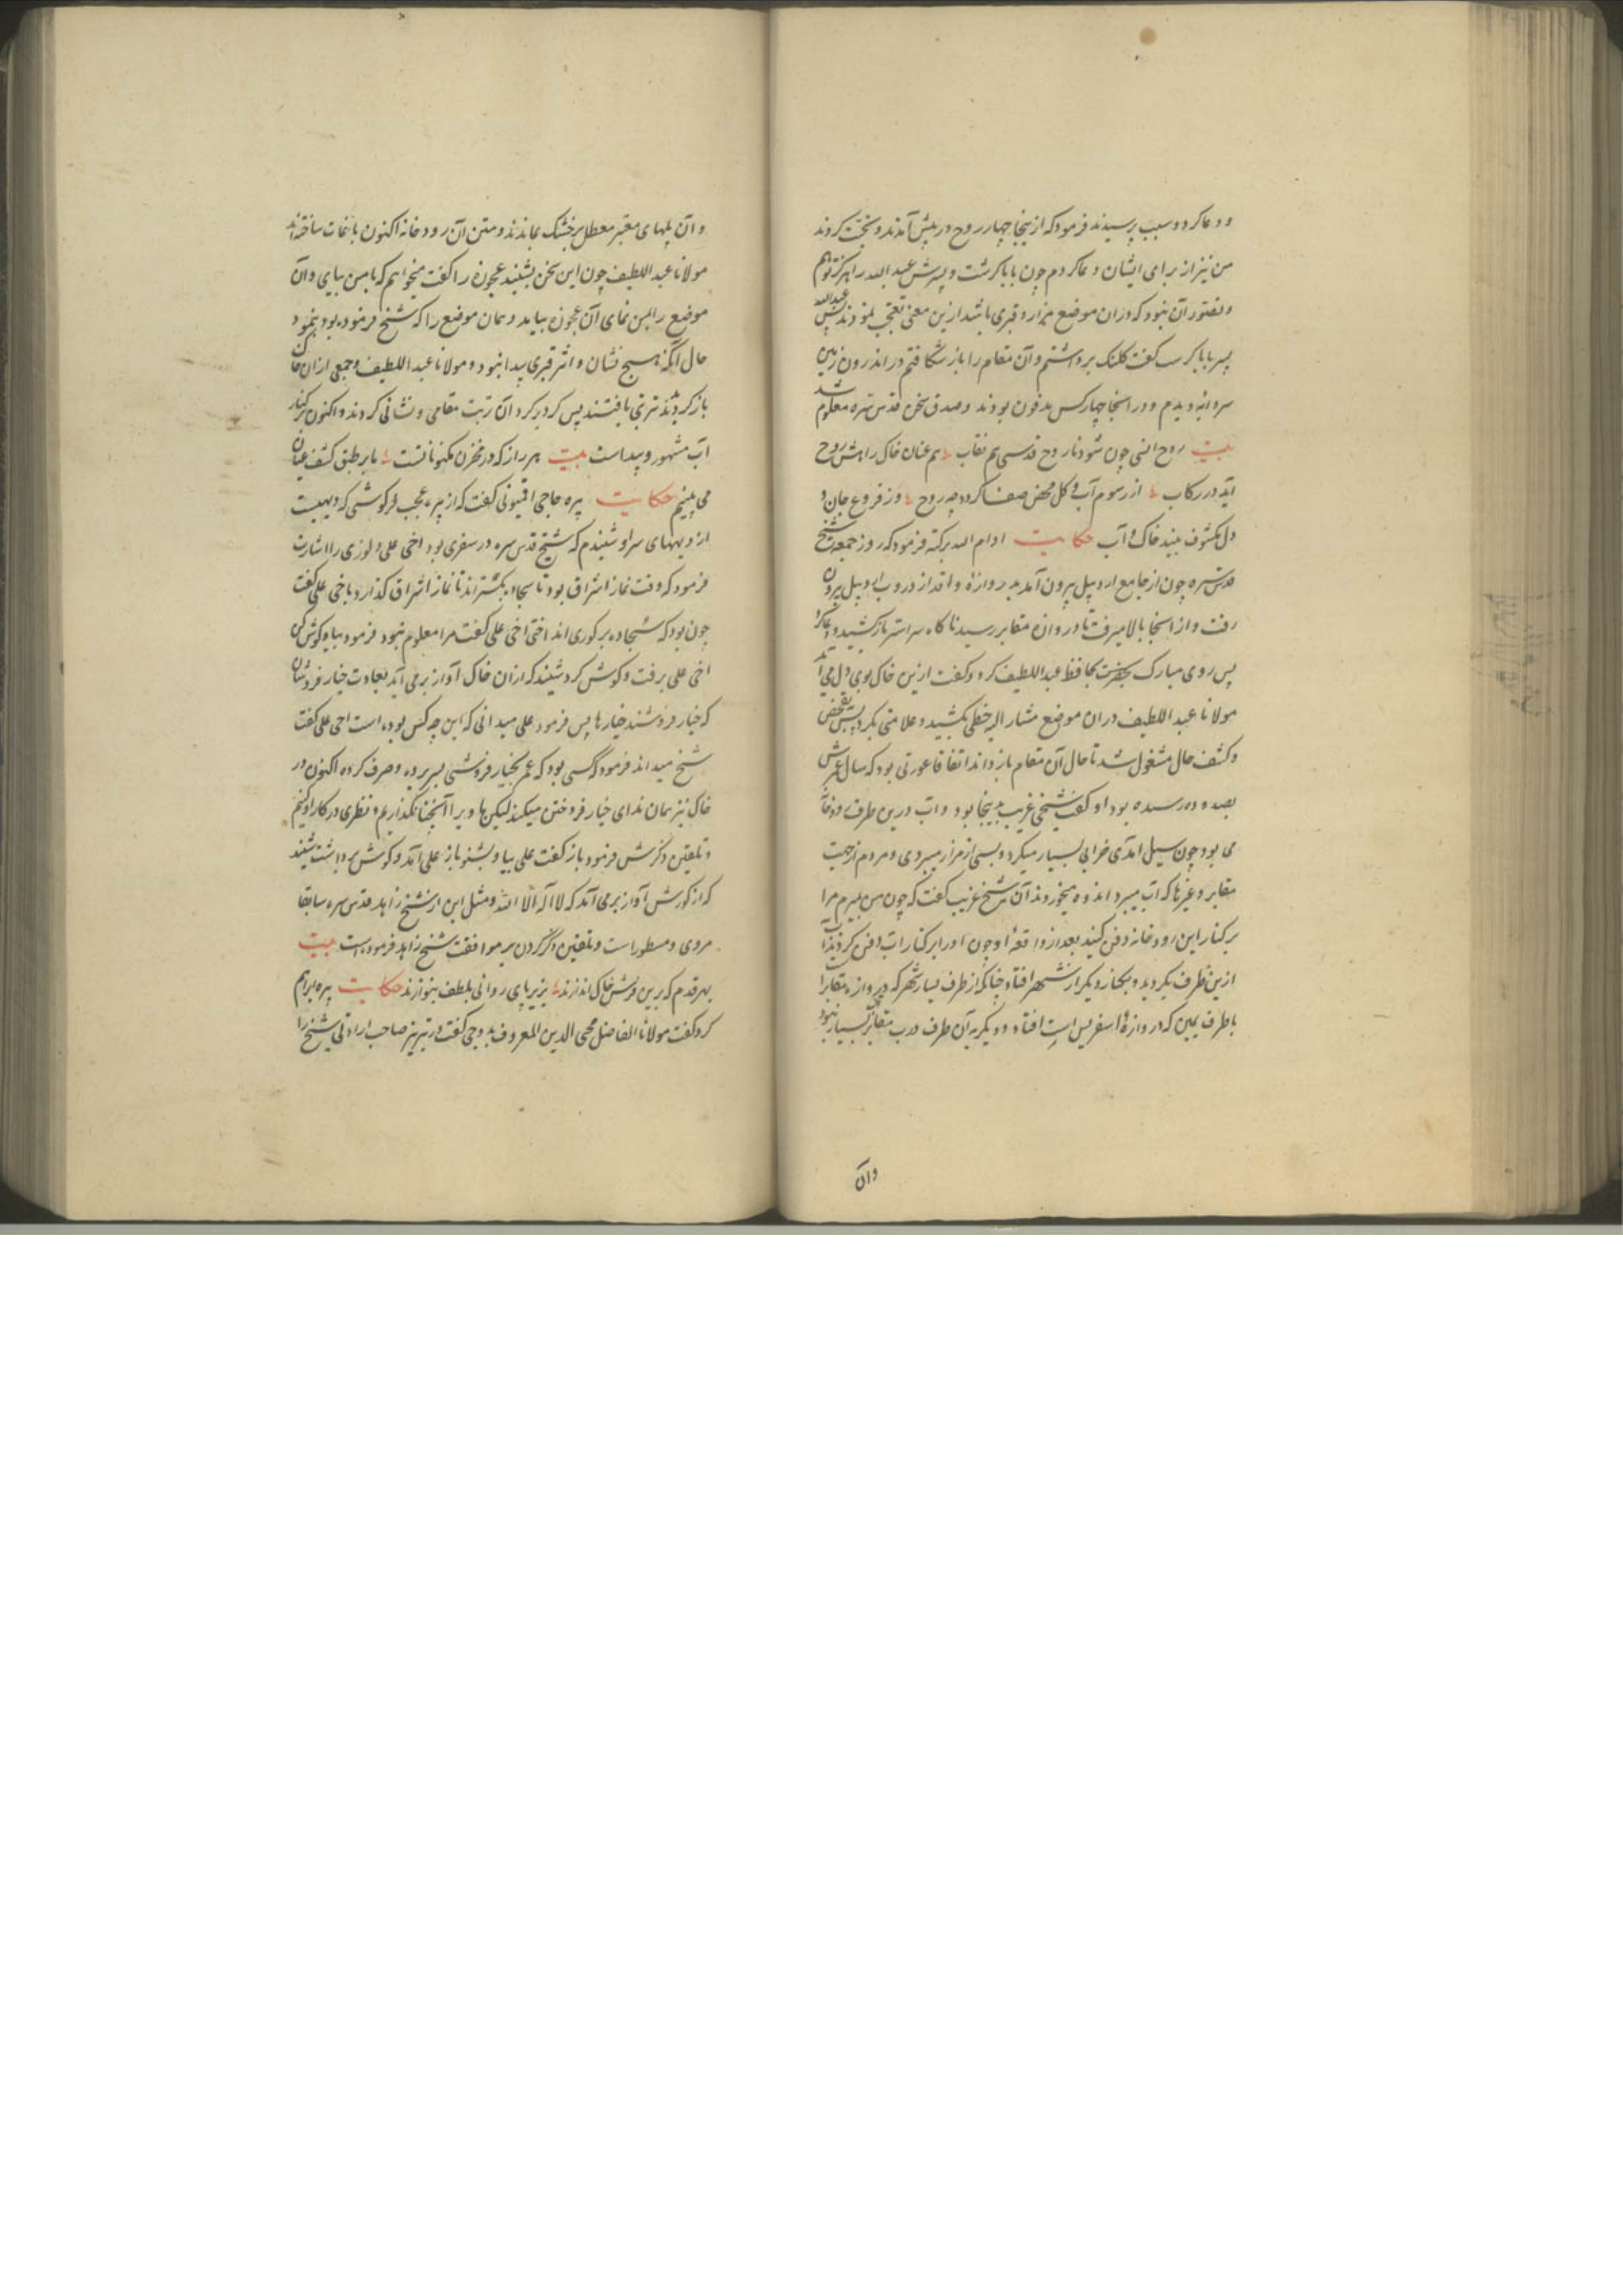 و دعا کرد و سبب پرسیدند فرمود که ازینجا چهار روح در پیش آمدند و تحیت کردند
من نیز از برای ایشان دعا کردم چون بابا گرشت و پسرش عبد الله را هرگز توهم
و تصور آن نبود که دران موضع مزار و قبری باشد ازین معنی تعجب نمودند پس عبد الله
پسر بابا گرست گفت کلنک برداشتم و آن مقام را باز شکافتم در اندرون زمین
سردابه دیدم و در انجا چهار کس مدفون بودند و صدق سخن قدس سره معلوم شد
بیت روح انسی چون شود با روح قدسی هم نقاب هم عنان خاک را بیش روح
آید در رکاب از رسوم آب و گل محض صفا کردد چه روح وز فروغ جان و
دل مکشوف بیند خاک و آب حکایت ادام الله برکته فرمود که روز جمعه شیخ
قدس سره چون از جامع اردبیل بیرون آمد بدروازهٔ واقد از دروب اردبیل بیرون
رفت و از انجا بالا میرفت تا در وازه مقابر رسید ناکاه سر استر باز کشید و دعا کرد
پس روی مبارک بحضرت بحافظ عبد اللطیف کرد و کفت ازین خاک بوی دل می آید
مولانا عبد اللطیف دران موضع مشار الیه خطی بکشید و علامتی بکرد پس بتفحص
و کشف حال مشغول شد تا حال آن مقام باز داند اتفاقا عورتی بود که سال عمرش
بصد و ده رسیده بود او کفت شیخی غریب اینجا بود و اب درین طرف رودخانه
می بود چون سیل امدی خرابی بسیار میکرد و بسی از مزار میبردی و مردم از جهت
مقابر و غیرها که آب میبرد اندوه میخوردند آن شیخ غریب کفت که چون من بمیرم مرا
بر کنار این رودخانه دفن کنید بعد از واقعهٔ او چون او را بر کنار اب دفن کردند آب
ازین طرف بکردید و بکنار دیگر از شهر افتاد چنانکه از طرف یسار شهر که دروازه مقابر است
با طرف یمین که دروازهٔ اسفریس است افتاد و دیگر به آن طرف درب مقابر سیل نبود
وان
و آن پلهای معتبر معطل بر خشک بماندند و متن آن رودخانه اکنون باغات ساخته اند
مولانا عبد اللطیف چون این سخن بشنید عجوزه را کفت میخواهم که با من بیایی و آن
موضع را بمن نمای آن عجوزه بیامد و همان موضع را که شیخ فرموده بود بنمود
حال آنکه هیچ نشان و اثر قبری پیدا نبود و مولانا عبد اللطیف و جمعی ازان خاک
باز کردند تربتی یافتند پس کرد بر کرد آن تربت مقامی و نشانی کردند و اکنون بر کنار
آب مشهور و پیداست بیت هر راز که در مخزن مکنونا تست ما بر طبق کشف عیان
می بینیم حکایت پیره حاجی اقتیونی کفت که از پیره عجب فرکوشی که دیهیست
از دیههای سراو شنیدم که شیخ قدس سره در سفری بود اخی علی دلوزی را اشارت
فرمود که وقت نماز اشراق بود تا سجاده بکستراند تا نماز اشراق کذارد با اخی علی کفت
چون بود که سجاده بر کوری انداختی اخی علی کفت مرا معلوم نبود فرمود بیا و کوش کن
اخی علی برفت و کوش کرد شنید که ازان خاک آواز بر می آید بعادت خیار فروشان
که خیار فروشند خیارها پس فرمود علی میدانی که این چه کس بوده است اخی علی کفت
شیخ میداند فرمود کسی بود که عمر بخیار فروشی بسر برده و صرف کرده اکنون در
خاک نیز همان ندای خیار فروختن میکند لیکن ما ویرا آنچنان نکذاریم و نظری در کار او کنیم
و تلقین ذکرش فرمود باز کفت علی بیا و بشنو باز علی آمد و کوش برداشت شنید
که از کورش آواز بر می آمد که لا اله الا الله و مثل این از شیخ زاهد قدس سره سابقا
مروی و مسطور است و تلقین ذکر کردن بر موافقت شیخ زاهد فرموده است بیت
بهر قدم که برین فرش خاک اندازند بزیر پای روانی بلطف بنوازند حکایت پیره ابراهیم
کرد کفت مولانا الفاضل محیی الدین المعروف بدوجی کفت در تبریز صاحب ارادتی شیخ را